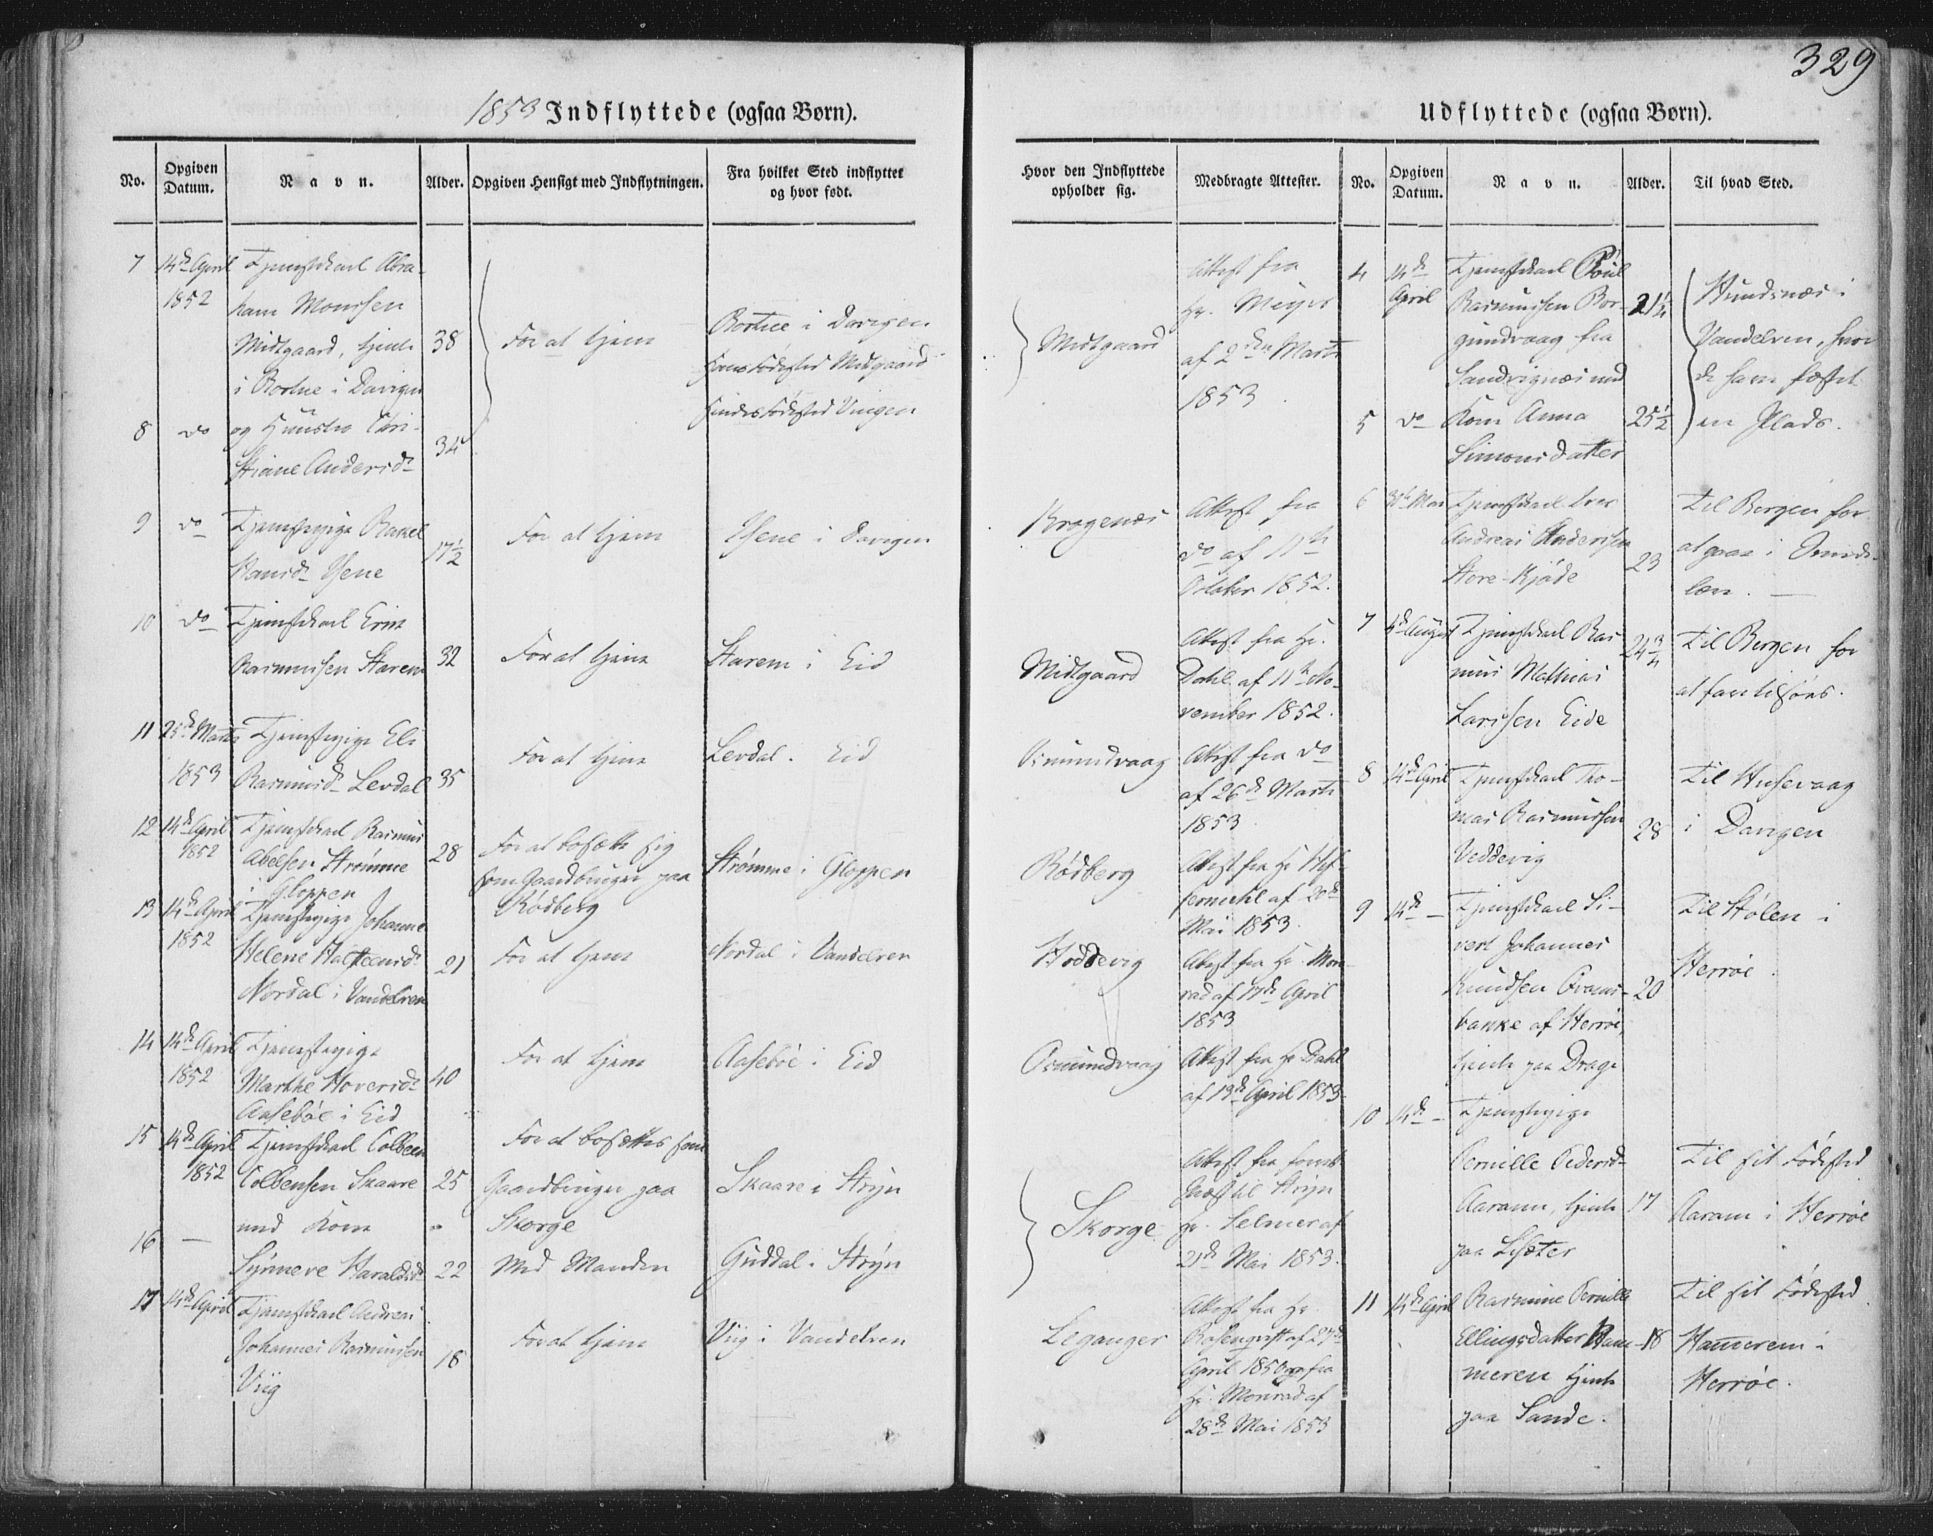 329
1853 Indflyttede (ogsaa Børn).
No.
Opgiven Datum.
Navn.
Alder.
Opgiven Hensigt med Indflytningen.
Fra hvilket Sted indflyttet og hvor født.
Hvor den Indflyttede opholder sig.
Medbragte Attester.
7
14de April
1852
Tjenestekarl Abra-
ham Monssen
Midtgaard, tjent
i Bortne i Davigen
38
For at tjene
Bortne i Davigen
hans Fødested Midtgaard
hendes Fødested Vingen
Midtgaard
Attest fra
Hr. Meyer
af 2den Marts
1853
8
do
og Hustru Chri-
stiane Andersdr
34
9
do
Tjenestepige Rakel
Hansdr Isene
17½
For at tjene
Isene i Davigen
Kragenæs
Attest fra
do af 11te
October 1852.
10
do
Tjenestekarl Erik
Rasmussen Starem
32
For at tjene
Starem i Eid
Midtgaard
Attest fra Hr.
Dahl af 11te No-
vember 1852.
11
25de Marts
1853
Tjenestepige Eli
Rasmusdr Levdal
35
For at tjene
Levdal i Eid
Osmundvaag
Attest fra do
af 26de Marts
1853
12
14de April
1852
Tjenestekarl Rasmus
Abelsen Strømme
i Gloppen
28
For at bosætte sig
som Gaardbruger paa
Rødberg
Strømme i Gloppen
Rødberg
Attest fra Hr
af 20de
Mai 1853.
13
14de April
1852
Tjenestepige Johanne
Helene
Nordal i Vandelven
21
For at tjene
Nordal i Vandelven
Hoddevig
Attest fra Hr. Mon-
rad af 17de April
1853
14
14de April
1852
Tjenestepige
Marthe
Aasebøe i Eid
40
For at tjene
Aasebøe i Eid
Osmundvaag
Attest fra Hr Dahl
af 13de April 1853
15
14de April
1852
Tjenestekarl Colbeen
Colbensen Skaare
med Kone
25
For at bosættes som
Gaardbruger paa
Skorge
Skaare i Stryn
Skorge
Attest fra
Præst til Stryn
Hr. Selmer af
21de Mai 1853.
16
—
Synneve Haraldsdr
22
Med Manden
Guddal i Stryn
17
14de April
Tjenestekarl Andreas
Johannes Rasmussen
Viig
18
For at tjene
Viig i Vandelven
Leganger
Attest fra Hr.
Rosenqvist af 27de
April 1850 og fra
Hr. Monrad af
28de Mai 1853
Udflyttede (ogsaa Børn).
No.
Opgiven Datum.
Navn.
Alder.
Til hvad Sted.
4
14de
April
Tjenestekarl Poul
Rasmussen Bor-
gundvaag fra
Sandvignæs med
21¼
Hundsnæs i
Vandelven, hvor
de have fæstet
en Plads.
5
do
Kone Anna
Simonsdatter
25½
6
Mai
Tjenestekarl
Andreas Andersen
Store-Kjøde
23
Til Bergen for
at gaae i
7
August
Tjenestekarl Ras-
mus Mathias
Larssen Eide
24¾
Til Bergen for
at fare tilsøes.
8
14de April
Tjenestekarl Tho-
mas Rasmussen
Veddevig
28
Til Husevaag
i Davigen
9
14de —
Tjenestekarl Si-
vert Johannes
Knudsen
bakke af Herrøe,
tjent paa Drage
20
Til Stølen i
Herrøe.
10
14de —
Tjenestepige
Pernille Pedersdr
Aaram, tjent
paa Lisæter
17
Til sit Fødested
Aaram i Herrøe
11
14de April
Rasmine Pernille
Ellingsdatter Ham-
meren tjent
paa Sande.
18
Til sit Fødested
Hameren i
Herrøe.